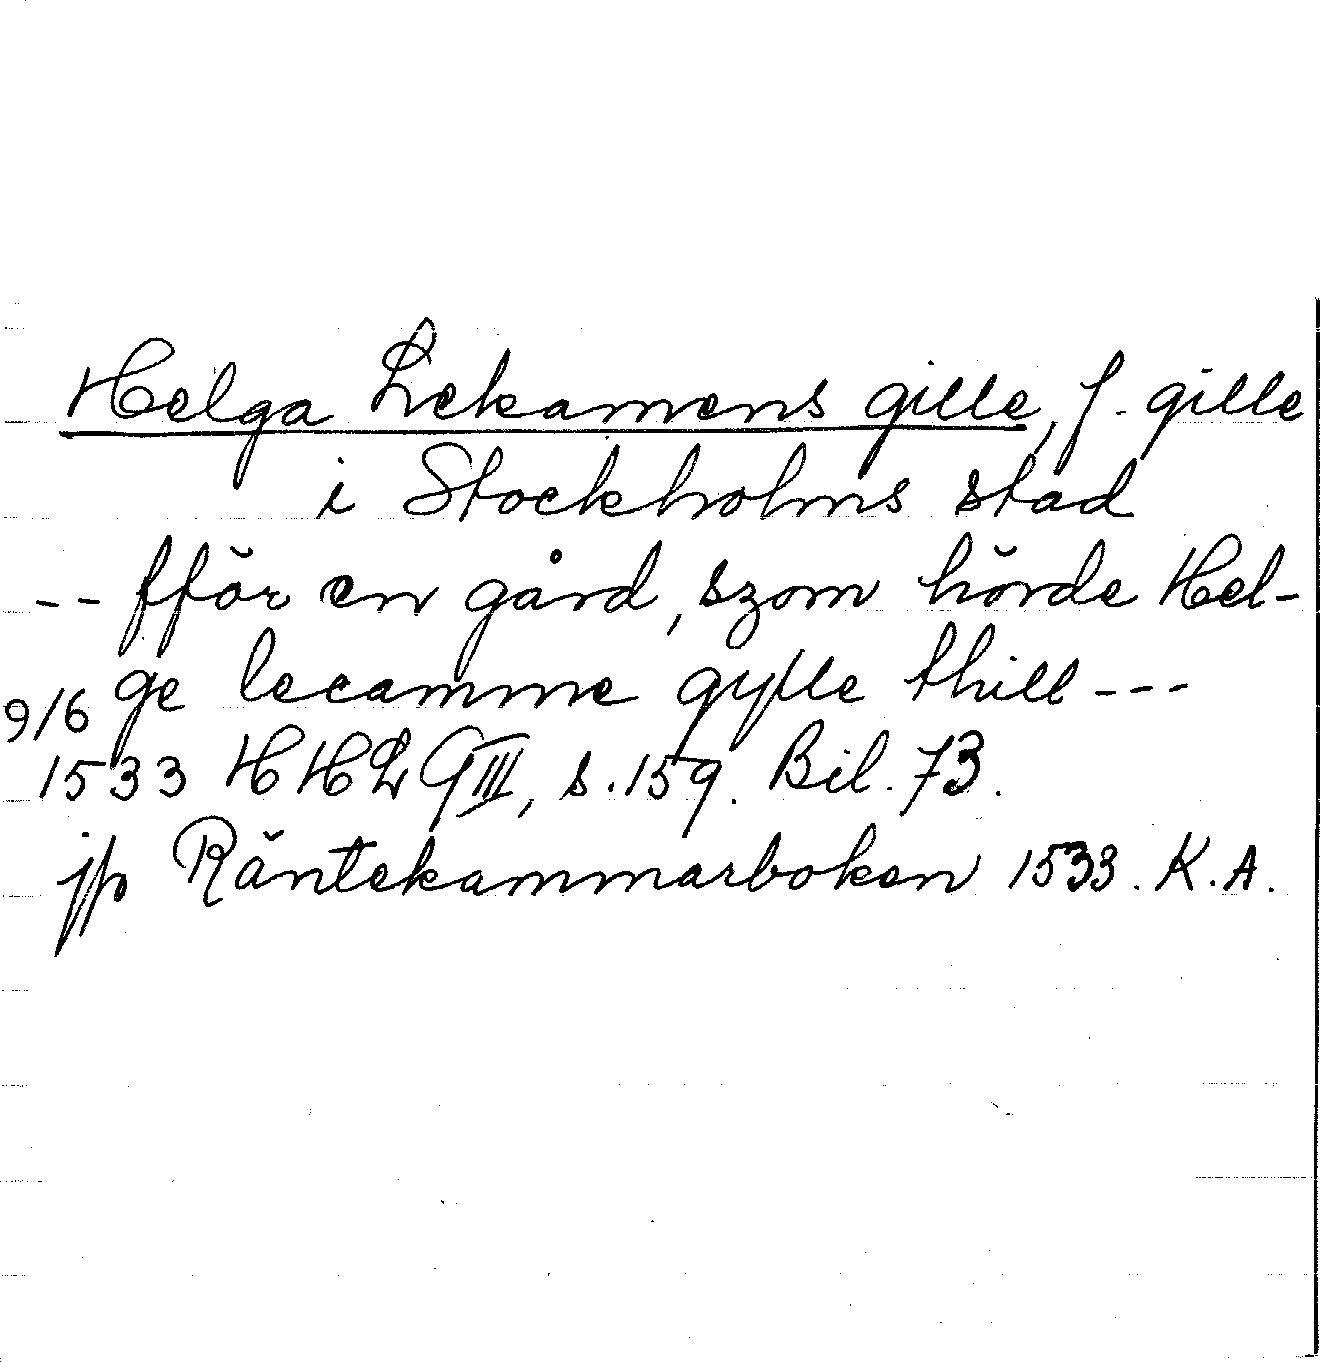 Helga Lekamens gille, f. gille
i Stockholms stad
-- fför en gård, szom hörde Hel-
ge lecamme gylle thill ---
9/6
1533 HHL GIII, s. 159. Bil. 73.
jfr Räntekammarboken 1533. K.A.